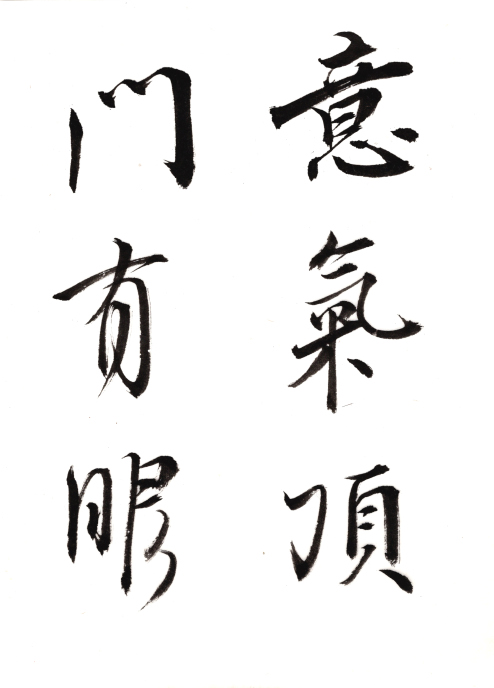 意氣頂
門有眼